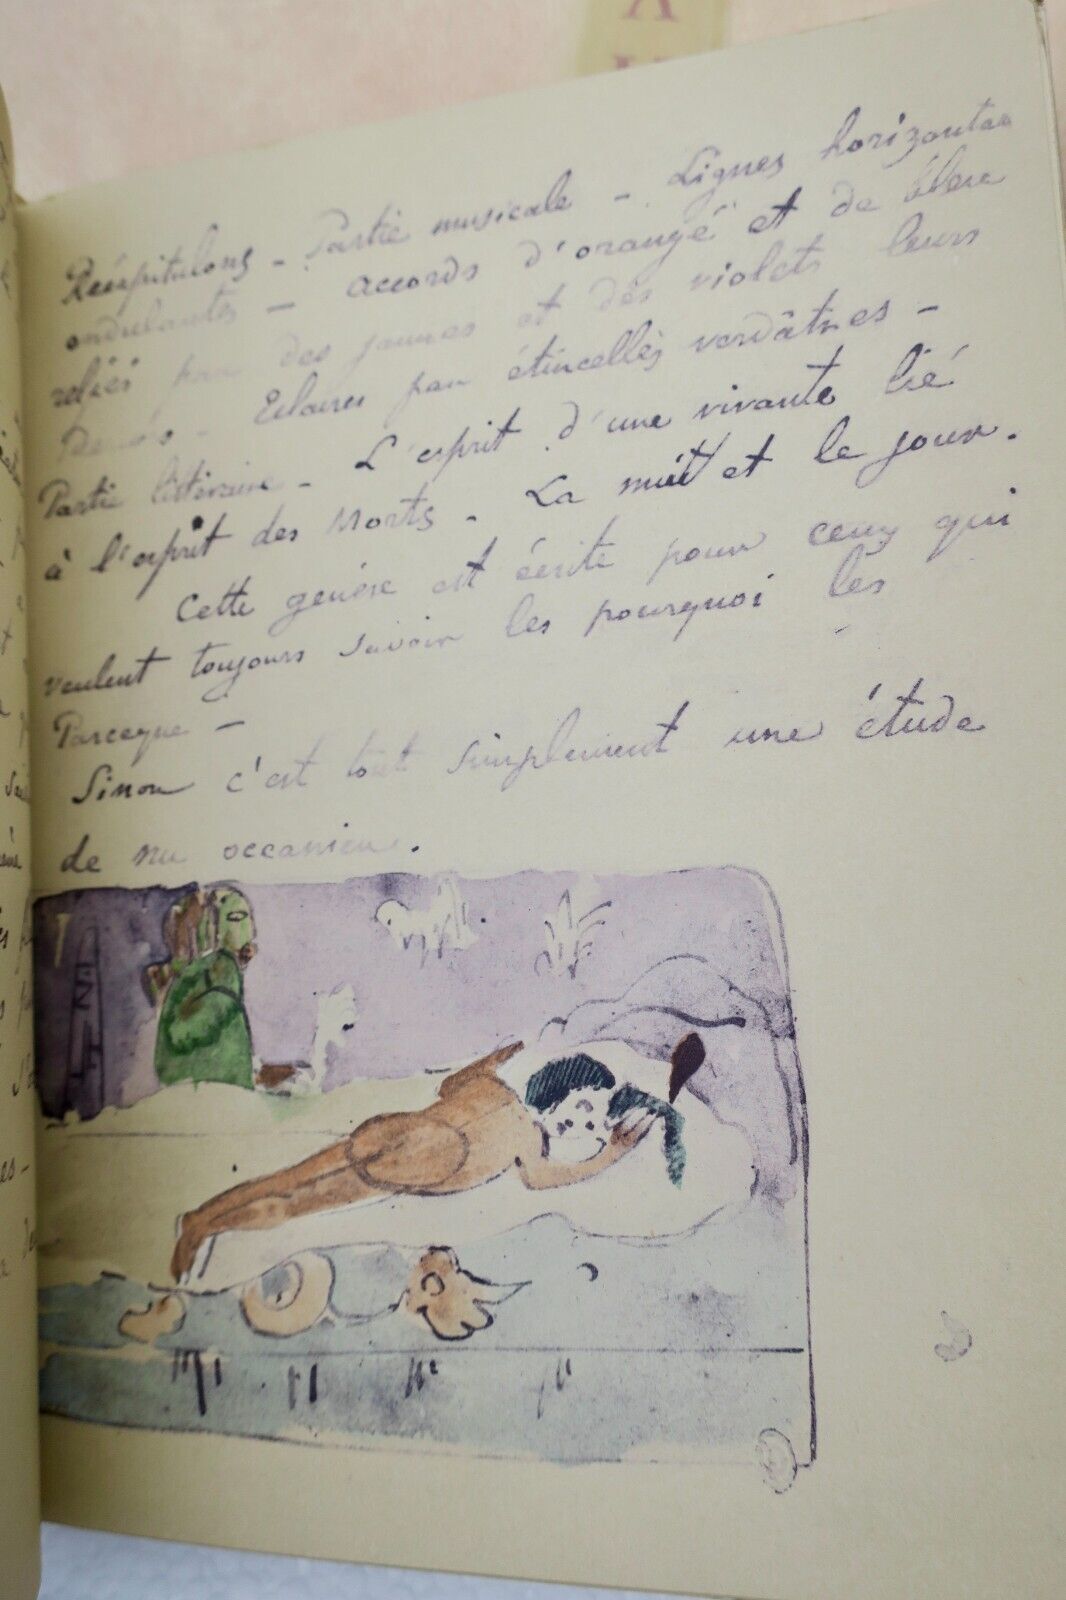 Récapitulons - Partie musicale - Lignes horizontales
ondulantes - accords d'orangé et de bleu
reliés par des jaunes et des violets leurs
Derivés - Eclairés par étincelles verdâtres -
Partie littéraire - L'esprit d'une vivante lié
à l'esprit des Morts - La nuit et le jour.
Cette genèse est écrite pour ceux qui
veulent toujours savoir les pourquoi les
Parceque -
Sinon c'est tout simplement une étude
de nu occanien.